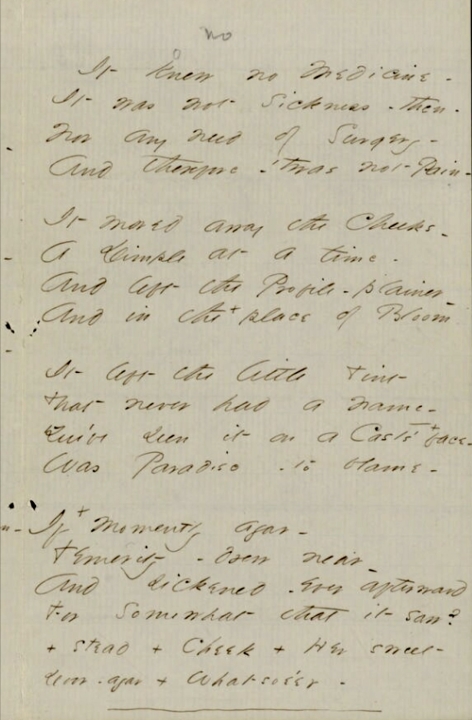 no
It knew no Medicine -
It was not Sickness - then -
Nor any need of Surgery -
And therefore - 'twas not Pain -
It moved away the Cheeks -
A Dimple at a time -
And left the Profile - plainer -
And in the + place of Bloom
It left the little Tint
That never had a Name -
You've seen it on a Cast's + face -
Was Paradise - to blame -
If + momently ajar -
Temerity - drew near -
And sickened - ever afterward
For Somewhat that it saw?
+ stead + Cheek + Her sweet
Door - ajar + Whatsoe'er -